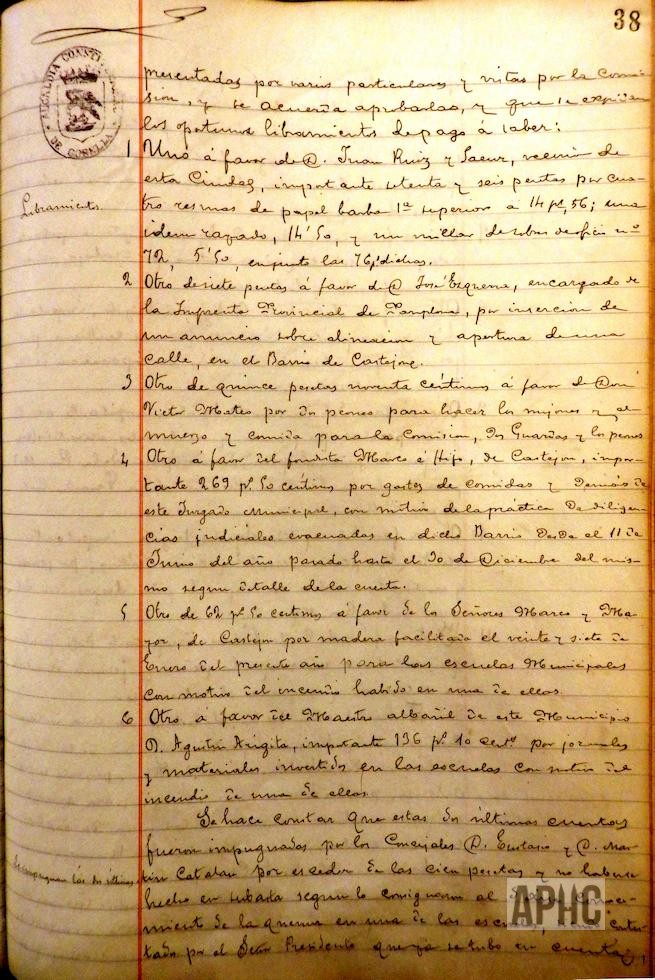 38
ALCALDIA CONSTITUCIONAL
DE CORELLA
presentadas por varios particulares y vistas por la Comi-
sion, y se acuerda aprobarlas, y que se expidan
los oportunos libramientos de pago á saber:
1 Uno á favor de D. Juan Ruiz y Saenz, vecino de
esta Ciudad, importante setenta y seis pestas por cua-
Libramientos
tro resmas de papel barba 1ª superior a 14 pts, 56; una
idem rayado, 14'50, y un millar de sobres de oficio nº
72, 5'50, en junto las 76 ptas dichas.
2 Otro de siete pestas á favor de D José Ezquerra, encargado de
la Imprenta Provincial de Pamplona, por insercion de
un anuncio sobre alineacion y apertura de una
calle, en el Barrio de Castejon.
3 Otro de quince pesetas noventa céntimos á favor de Don
Victor Mateo por dos peones para hacer los mojones y al-
muerzo y comida para la Comision, dos Guardas y los peones
4 Otro á favor del fondista Marco é Hijo, de Castejon, impor-
tante 269 pts 50 centimos por gastos de comidas y demás de
este Juzgado Municipal, con motivo de la práctica de diligen-
cias judiciales evacuadas en dicho Barrio desde el 11 de
Junio del año pasado hasta el 30 de Diciembre del mis-
mo segun detalle de la cuenta.
5 Otro de 62 pts 50 centimos á favor de los Señores Marco y Ma-
yor, de Castejon por madera facilitada el veinte y siete de
Enero del presente año para las escuelas Municipales
con motivo del incendio habido en una de ellas.
6 Otro á favor del Maestro albañil de este Municipio
D. Agustin Arigita, importante 136 pts 10 cents por jornales
y materiales invertidos en las escuelas con motivo del
incendio de una de ellas.
Se hace constar que estas dos últimas cuentas
fueron impugnadas por los Concejales D. Eustasio y D. Mar-
Se impugnan las dos últimas
tin Catalan por esceder de las cien pesetas y no haberse
hecho en subasta segun lo consignaron al darse conoci-
miento de la quema en una de las escuelas, contes-
tados por el Señor Presidente que ya se tubo en cuenta,
APHC